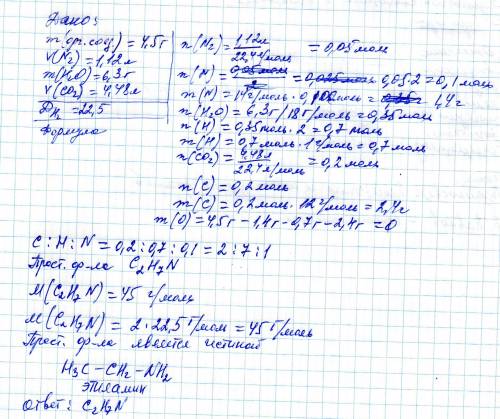 Дано:
m(ор. соед) = 4,5г
V(N₂) = 1,12л
m(H₂O) = 6,3г
V(CO₂) = 4,48л
D H₂ = 22,5
Формула
n(N₂) = 1,12л / 22,4л/моль = 0,05моль
n(N) = 0,05·2 = 0,1моль
m(N) = 14г/моль · 0,1моль = 1,4г
n(H₂O) = 6,3г/18г/моль = 0,35моль
n(H) = 0,35моль · 2 = 0,7моль
m(H) = 0,7моль · 1г/моль = 0,7моль
n(CO₂) = 4,48л / 22,4л/моль = 0,2моль
n(C) = 0,2моль
m(C) = 0,2моль · 12г/моль = 2,4г
m(O) = 4,5г - 1,4г - 0,7г - 2,4г = 0
C : H : N = 0,2 : 0,7 : 0,1 = 2 : 7 : 1
Прост. ф-ла C₂H₇N
M(C₂H₇N) = 45 г/моль
M(C₂H₇N) = 2 · 22,5 г/моль = 45 г/моль
Прост. ф-ла является истиной
H₃C – CH₂ – NH₂
этиламин
Ответ: C₂H₇N